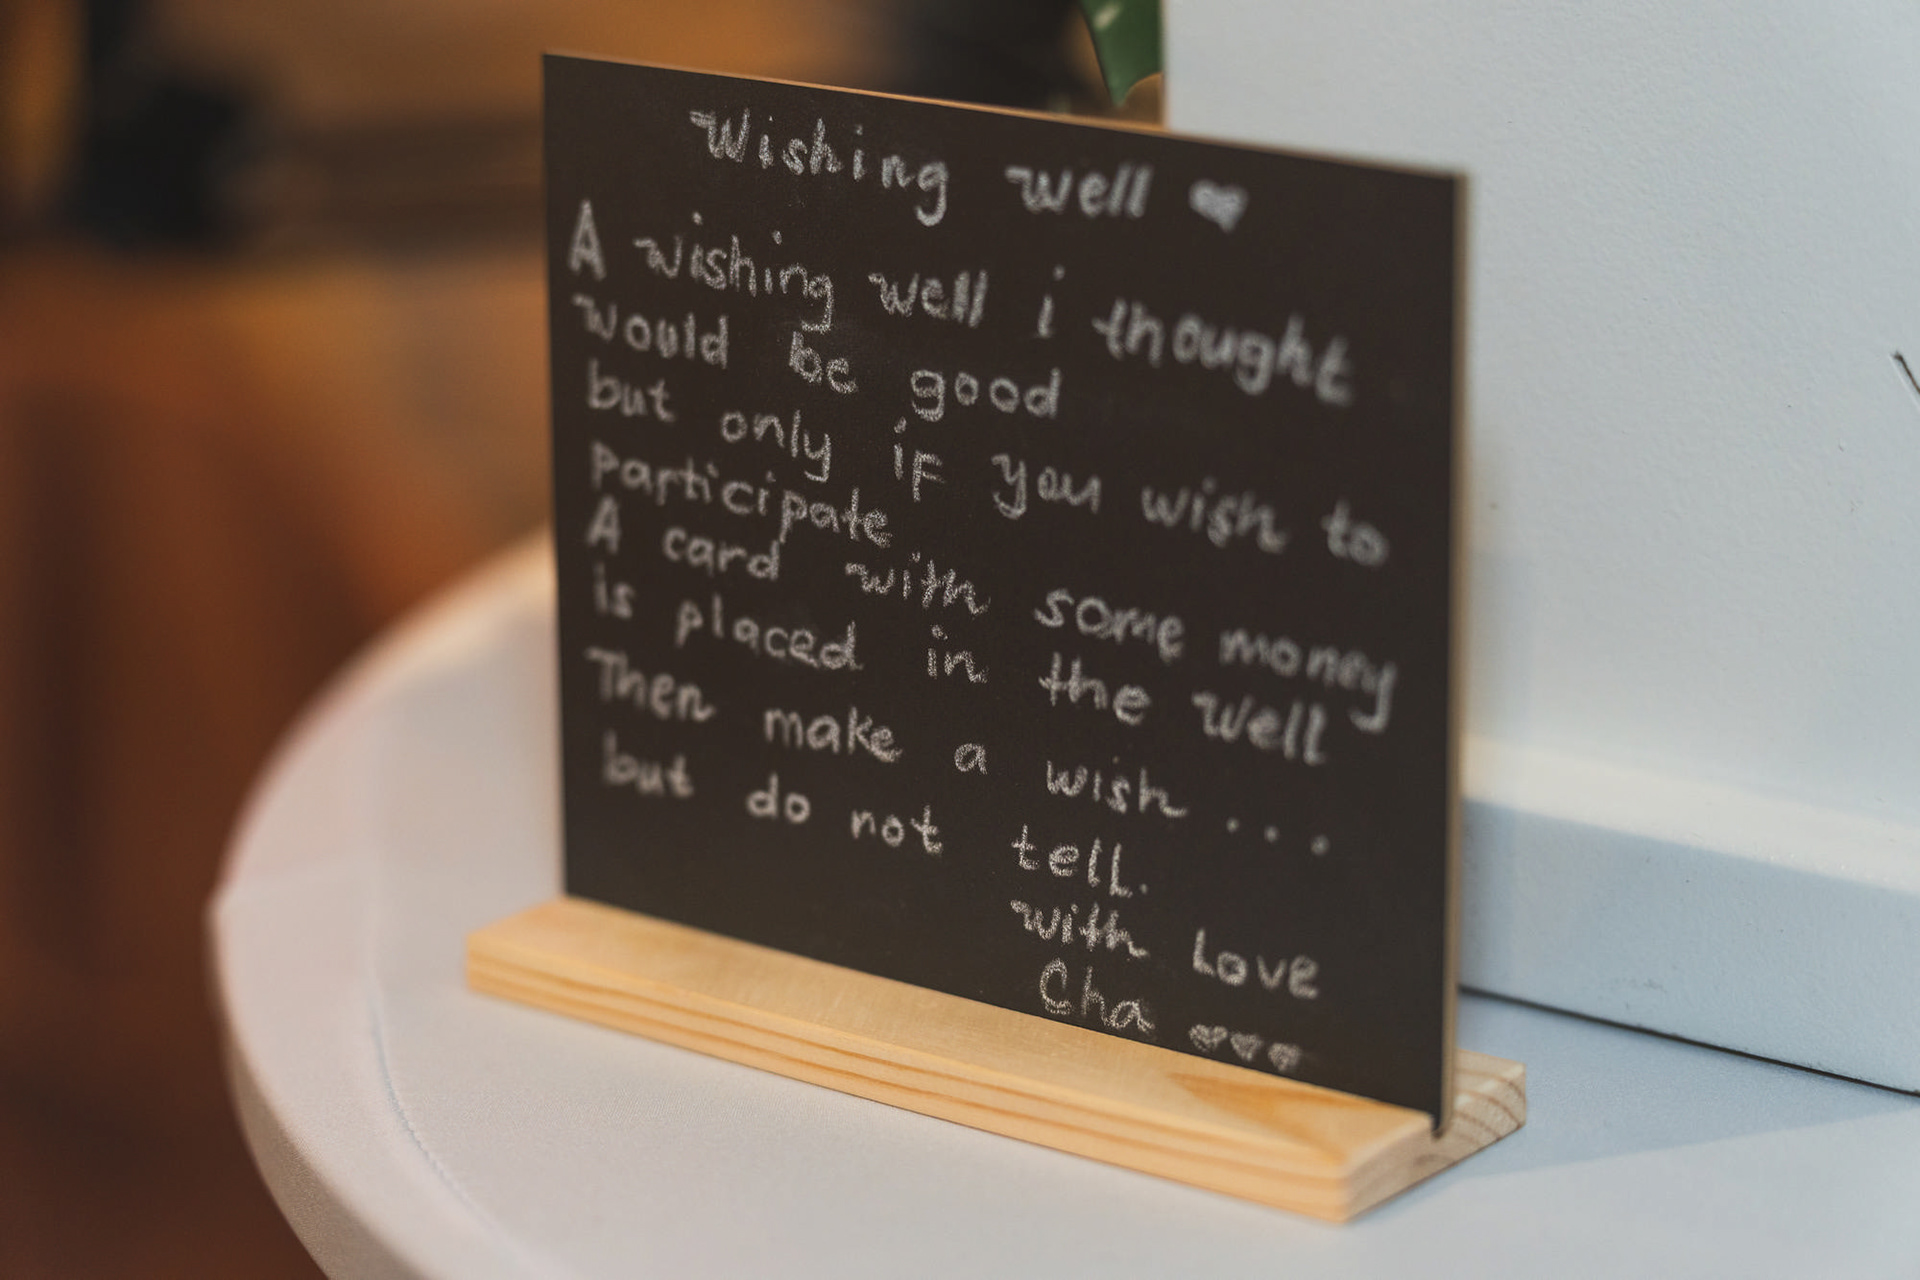 Wishing well ♥
A wishing well i thought
would be good
but only if you wish to
participate
A card with some money
is placed in the well
Then make a wish...
but do not tell.
with Love
Cha ♥♥♥